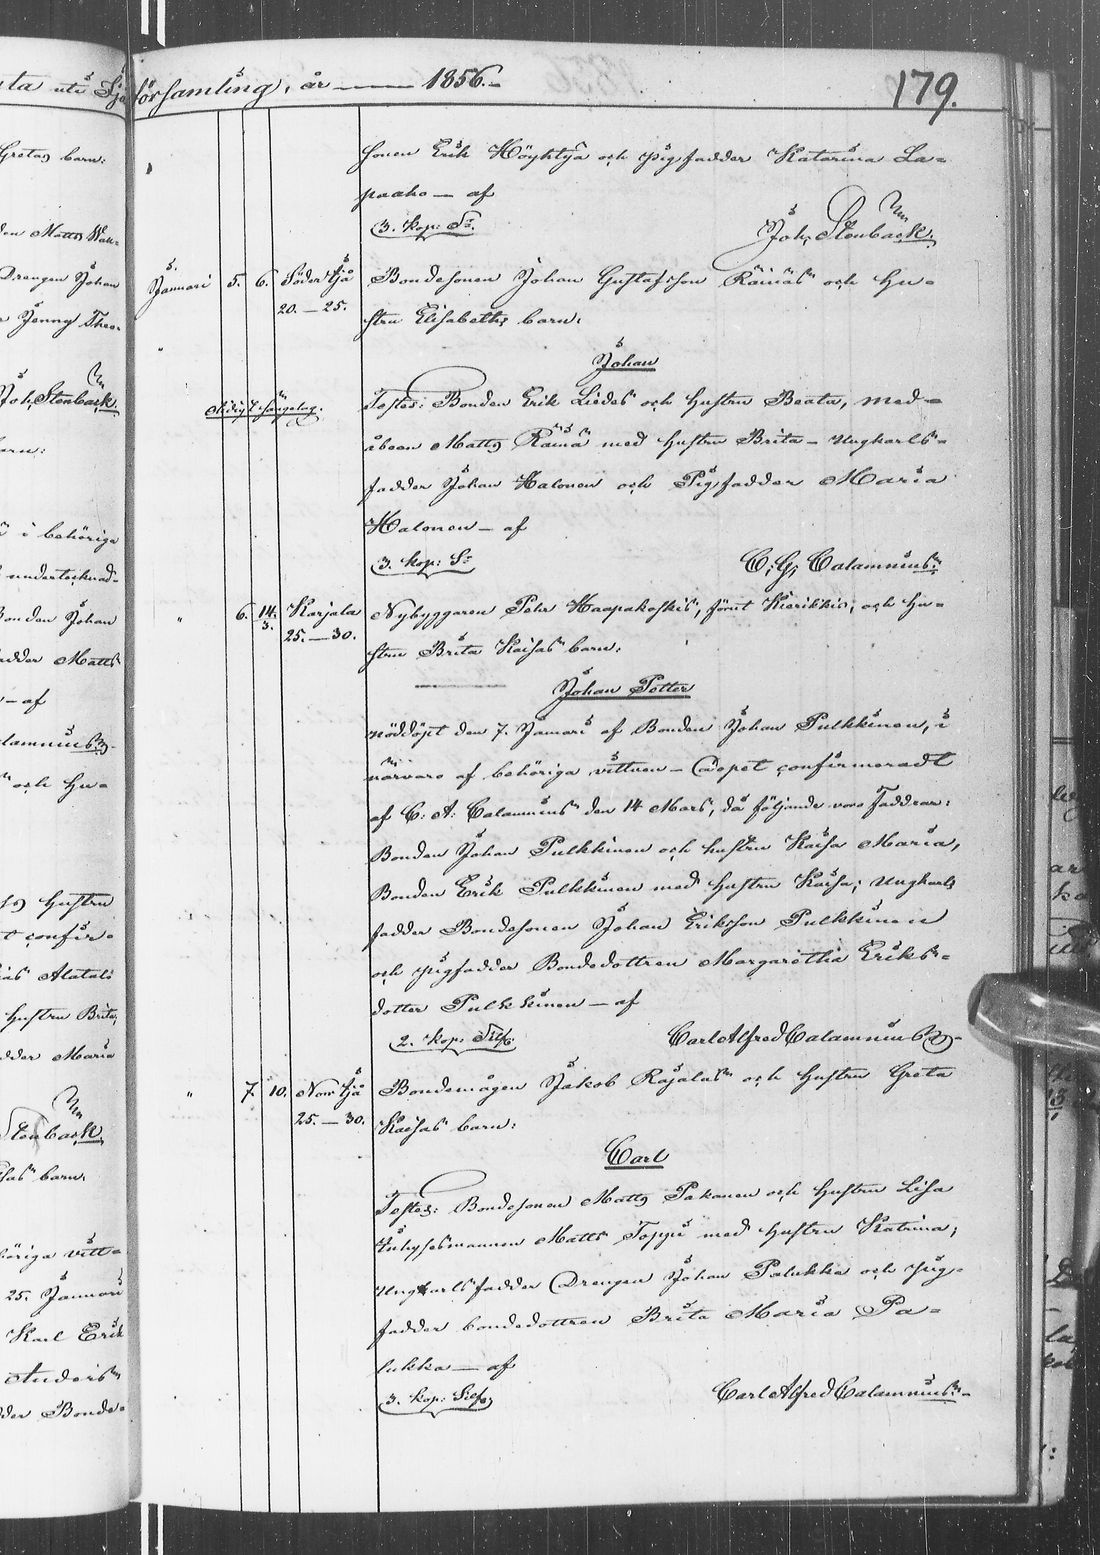 församling, år — 1856.
179.
sonen Erik Höyhtyä och pigfadder Katarina La=
paaho — af
3. kop: Sr.
Joh. Stenbäck.
Januari 5. 6. Söder Ijå Bondesonen Johan Gustafsson Räinäs och Hu=
20. — 25. stru Elisabeths barn:
Johan
Testes: Bonden Erik Liedes och Hustru Beata, med=
åboen Matts Räinä med Hustru Brita — Ungkarls=
fadder Johan Halonen och Pigfadder Maria
Halonen — af
3. kop: Sr
C. G. Calamnius.
" 6. 14/3. Karjala Nybyggaren Petr Haapakoskis, förut Kierikkis, och Hu=
25. — 30. stru Brita Kaisas barn:
Johan Petter
nöddöpt den 7. Januari af Bonden Johan Pulkkinen, i
närvaro af behöriga vittnen — Döpet confirmeradt
af C. A. Calamnius den 14 Mars, då följande voro Faddrar:
Bonden Johan Pulkkinen och hustru Kaisa Maria,
Bonden Erik Pulkkinen med Hustru Kaisa; Ungkarls
fadder Bondesonen Johan Eriksson Pulkkinen
och pigfadder Bondedottren Margaretha Eriks=
dotter Pulkkinen — af
2. kop: Silfr
Carl Alfred Calamnius
" 7. 10. Norr Ijå Bondemågen Jakob Rajalas och Hustru Greta
25. — 30. Kaisas barn:
Carl
Testes: Bondesonen Matts Pakanen och Hustru Lisa
Inhysesmannen Matts Toppi med Hustru Katrina;
Ungkarlsfadder Drengen Johan Palukka och pig=
fadder bondedottren Brita Maria Pa=
lukka — af
3. kop: Silfr
Carl Alfred Calamnius